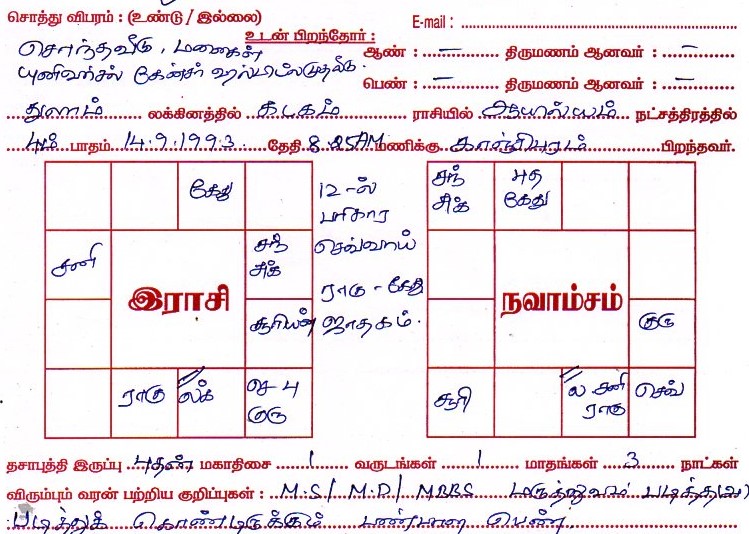 சொத்து விபரம் : (உண்டு / இல்லை)
E-mail :
உடன் பிறந்தோர் :
சொந்தவீடு, மனைகள்
ஆண் : — திருமணம் ஆனவர் : —
யுனிவர்சல் கேன்சர் ஹாஸ்பிடல்
பெண் : — திருமணம் ஆனவர் : —
துலாம் லக்கினத்தில் கடகம் ராசியில் ஆயில்யம் நட்சத்திரத்தில்
4ம் பாதம் 14.9.1993 தேதி 8.25AM மணிக்கு காஞ்சிபுரம் பிறந்தவர்.
கேது
சனி
சந்
சுக்
இராசி
சூரியன்
ராகு
லக்
செ பு
குரு
12-ல்
பரிகார
செவ்வாய்
ராகு - கேது
ஜாதகம்.
சந்
சுக்
புத
கேது
நவாம்சம்
குரு
சூரி
ல சனி
ராகு
செவ்
தசாபுத்தி இருப்பு புதன் மகாதிசை 1 வருடங்கள் 1 மாதங்கள் 3 நாட்கள்
விரும்பும் வரன் பற்றிய குறிப்புகள் : M.S / M.D / MBBS மருத்துவம் படித்த
படித்துக் கொண்டிருக்கும் பண்பான பெண்.